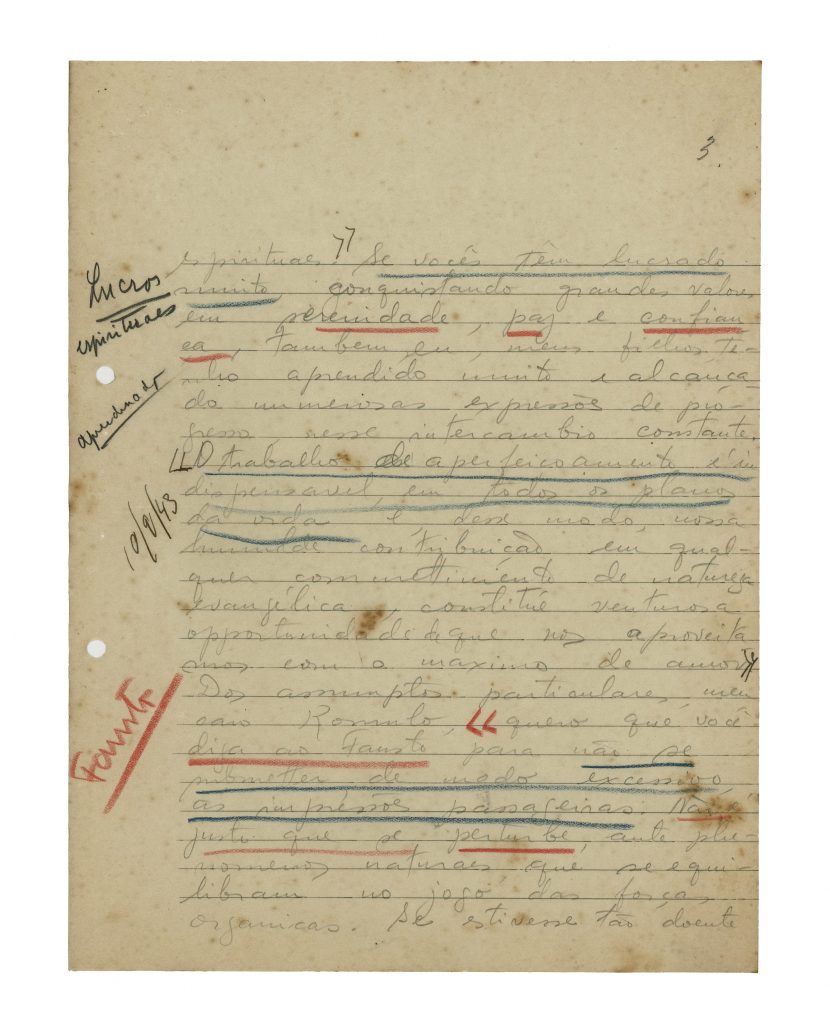 3.
espirituaes." Se vocês têm lucrado
muito, conquistando grandes valores
em serenidade, paz e confian
ça, tambem eu, meus filhos, te-
nho aprendido muito e alcança-
do numerosas expressões de pro-
gresso nesse intercambio constante.
"O trabalho de aperfeiçoamento é in
dispensavel, em todos os planos
da vida e, desse modo, nossa
humilde contribuição em qual-
quer commettimento de natureza
evangélica, constitúe venturosa
opportunidade de que nos aproveita
mos com o maximo de amor."
Dos assumptos particulares, meu
caro Romulo, "quero que você
diga ao Fausto para não se
submetter, de modo excessivo,
às impressões passageiras. Não é
justo que se perturbe, ante phe-
nomenos naturaes, que se equi-
libram no jogo das forças
organicas. Se estivesse tão doente
Lucros
espirituaes
aprendizado
10/9/43
Fausto